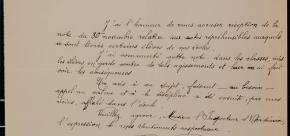 J'ai l'honneur de vous accuser réception de la
note du 30 novembre relative aux actes répréhensibles auxquels
se sont livrés certains élèves de nos écoles.
J'ai commenté cette note dans les classes, mis
les élèves en garde contre de tels agissements et leur en ai fait
voir les conséquences.
Un avis à ce sujet, faisant - au besoin -
appel au même et à de
affiché dans l'école.
Veuillez agréer, l'Inspecteur d'
l'expression de mes sentiments respectueux.